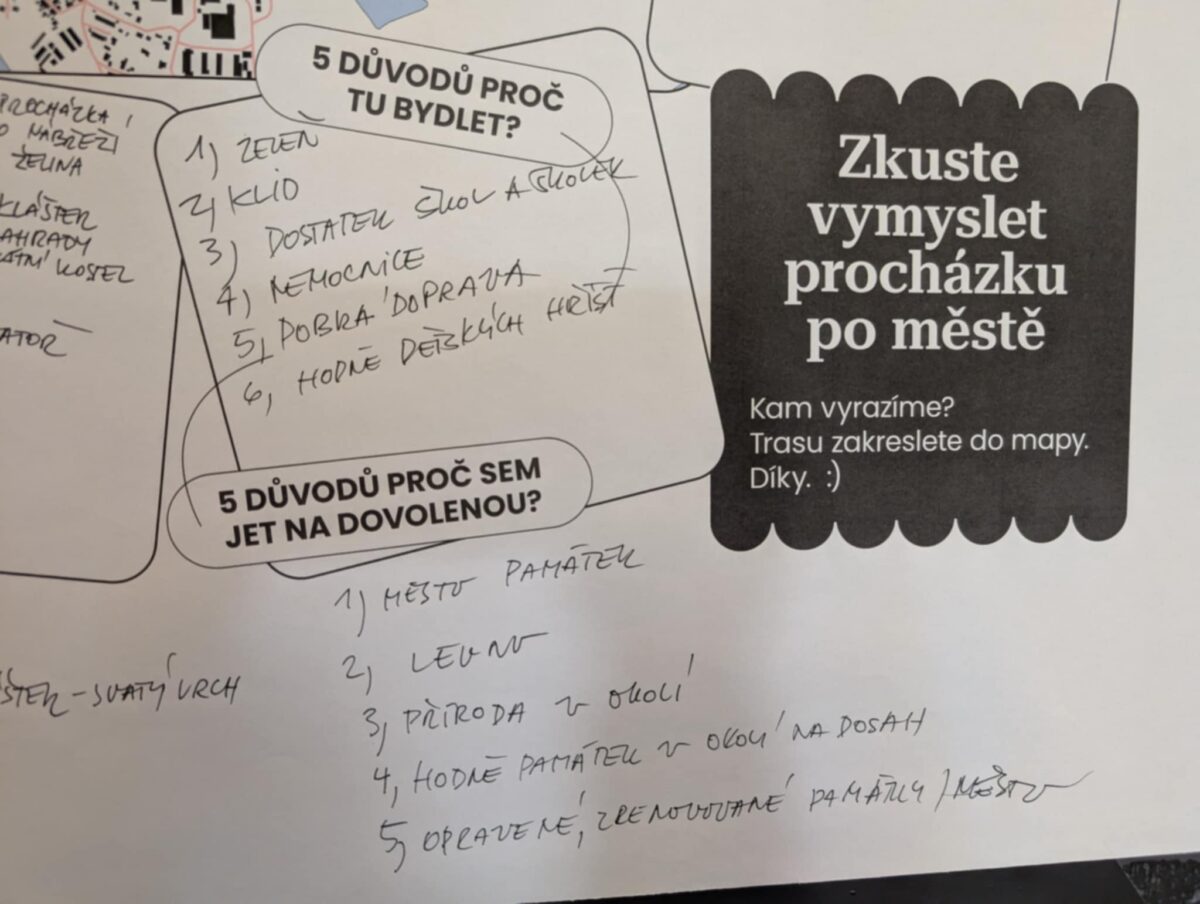 PROCHÁZKA
NÁBŘEŽÍ
ŽELINA
KLÁŠTER
AHRADY
KOSTEL
ATOŘ
5 DŮVODŮ PROČ
TU BYDLET?
1) ZELEŇ
2, KLID
3) DOSTATEK ŠKOL A ŠKOLEK
4) NEMOCNICE
5, DOBRÁ DOPRAVA
6, HODNĚ DĚTSKÝCH HŘIŠŤ
5 DŮVODŮ PROČ SEM
JET NA DOVOLENOU?
1) MĚSTO PAMÁTEK
2, LEVNO
3, PŘÍRODA V OKOLÍ
4, HODNĚ PAMÁTEK V OKOLÍ NA DOSAH
5, OPRAVENÉ, ZRENOVOVANÉ PAMÁTKY / MĚSTO
ŠTER - SVATÝ VRCH
Zkuste
vymyslet
procházku
po městě
Kam vyrazíme?
Trasu zakreslete do mapy.
Díky. :)